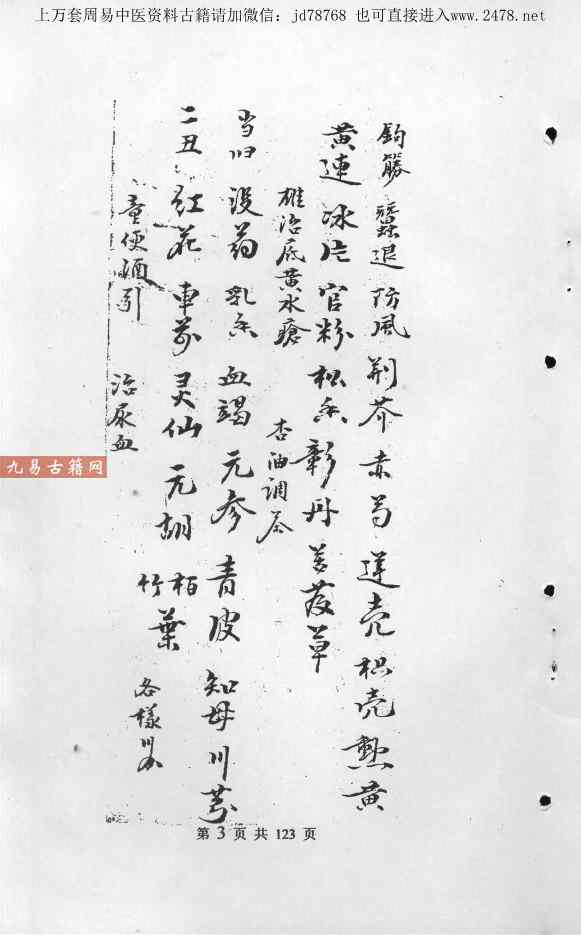 上万套周易中医资料古籍请加微信：jd78768 也可直接进入www.2478.net
钩籐 蚕退 防風 荆芥 赤芍 连壳 枳壳 熟黄
黄連 冰片 官粉 松香 彰丹 草
雄治底黄水瘡 杏油调茶
当归 没药 乳香 血竭 元参 青皮 知母 川芎
二丑 红花 車前 灵仙 元胡 竹柏葉
童便酒引 治尿血 各樣
九易古籍网
第 3 页 共 123 页